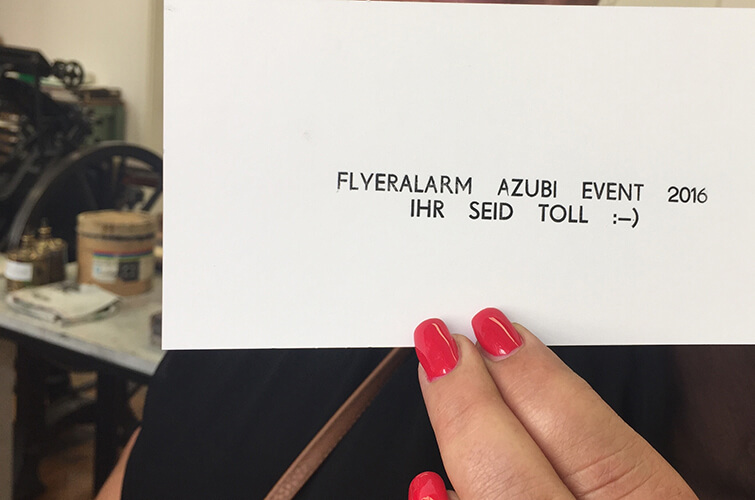 FLYERALARM AZUBI EVENT 2016
IHR SEID TOLL :–)